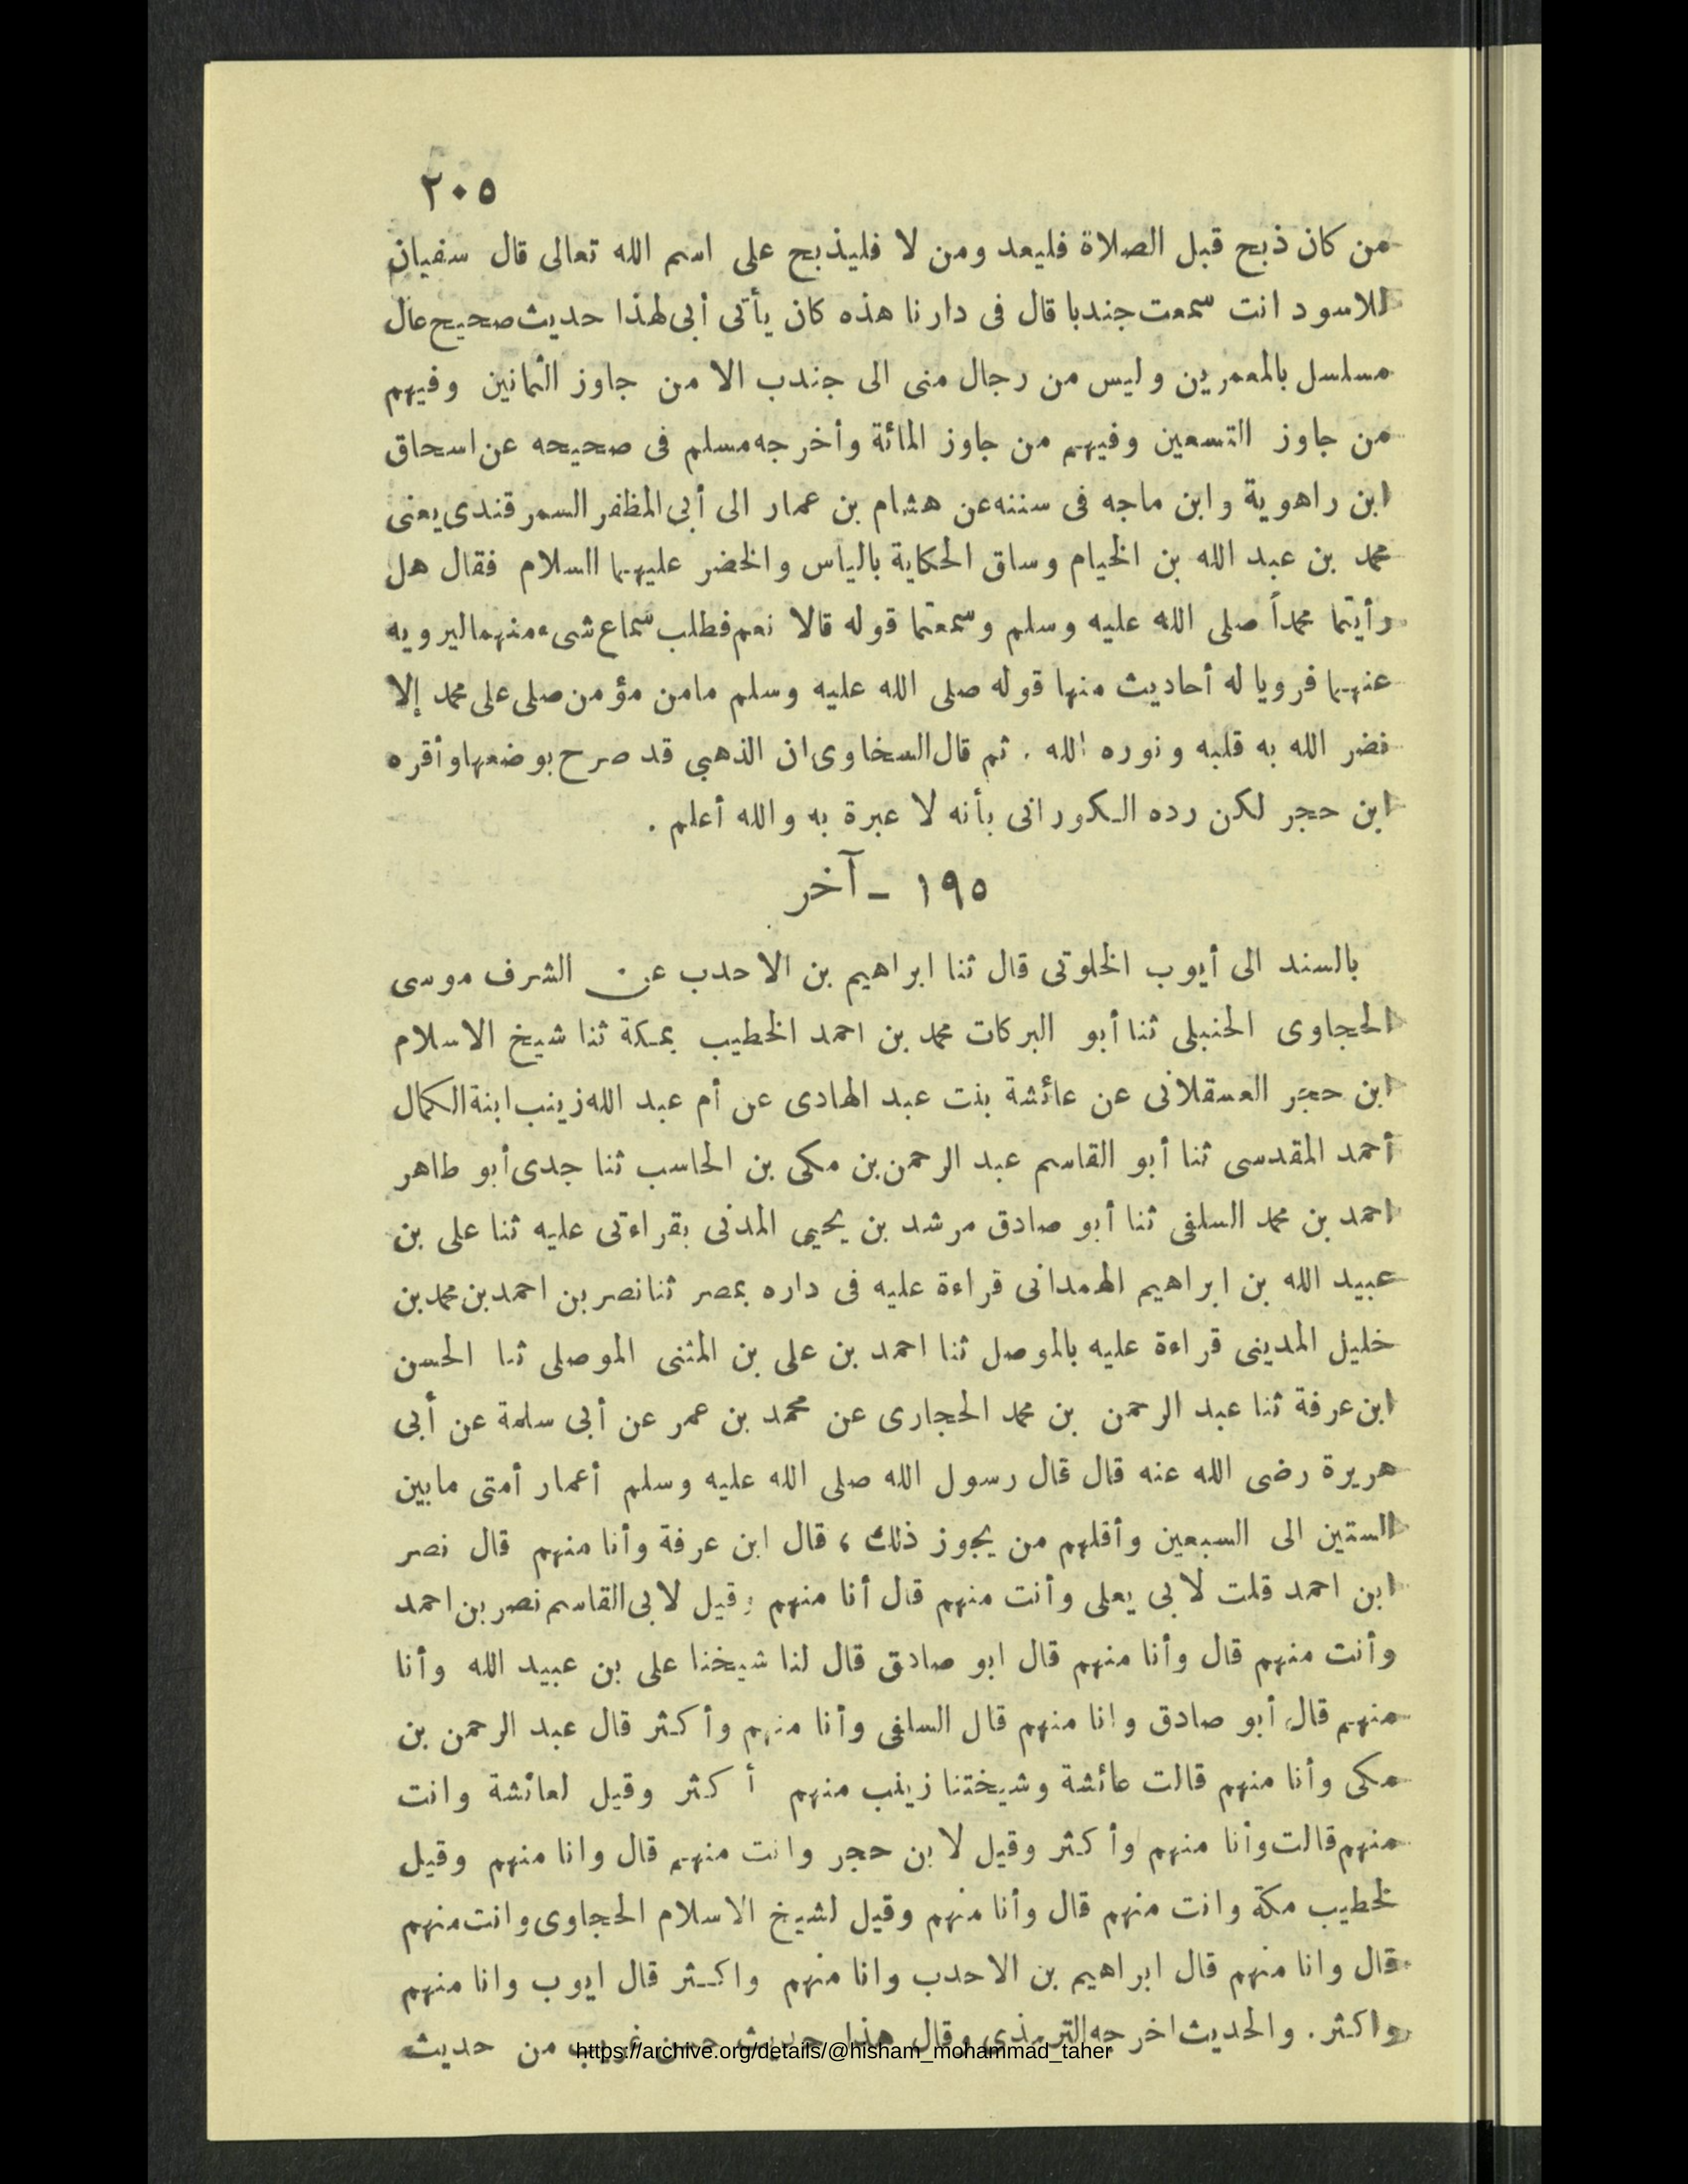 ٢٠٥
من كان ذبح قبل الصلاة فليعد ومن لا فليذبح على اسم الله تعالى قال سفيان
للاسود انت سمعت جندبا قال فى دارنا هذه كان يأتى أبى لهذا حديث صحيح عال
مسلسل بالمعمرين وليس من رجال منى الى جندب الا من جاوز الثمانين وفيهم
من جاوز التسعين وفيهم من جاوز المائة وأخرجه مسلم فى صحيحه عن اسحاق
ابن راهوية وابن ماجه فى سننه عن هشام بن عمار الى أبى المظفر السمرقندى يعنى
محمد بن عبد الله بن الخيام وساق الحكاية بالياس والخضر عليهما السلام فقال هل
رأيتما محمداً صلى الله عليه وسلم وسمعتما قوله قالا نعم فطلب سماع شىء منهما ليرويه
عنهما فرويا له أحاديث منها قوله صلى الله عليه وسلم مامن مؤمن صلى على محمد إلا
نضر الله به قلبه ونوره الله . ثم قال السخاوى ان الذهبي قد صرح بوضعها وأقره
ابن حجر لكن رده الكورانى بأنه لا عبرة به والله أعلم .
١٩٥ - آخر
بالسند الى أيوب الخلوتى قال ثنا ابراهيم بن الاحدب عن الشرف موسى
الحجاوى الحنبلى ثنا أبو البركات محمد بن احمد الخطيب بمكة ثنا شيخ الاسلام
ابن حجر العسقلانى عن عائشة بنت عبد الهادى عن أم عبد الله زينب ابنة الكمال
أحمد المقدسى ثنا أبو القاسم عبد الرحمن بن مكى بن الحاسب ثنا جدى أبو طاهر
احمد بن محمد السلفى ثنا أبو صادق مرشد بن يحيى المدنى بقراءتى عليه ثنا على بن
عبيد الله بن ابراهيم الهمدانى قراءة عليه فى داره بمصر ثنا نصر بن احمد بن محمد بن
خليل المدينى قراءة عليه بالموصل ثنا احمد بن على بن المثنى الموصلى ثنا الحسن
ابن عرفة ثنا عبد الرحمن بن محمد الحجارى عن محمد بن عمر عن أبى سلمة عن أبى
هريرة رضى الله عنه قال قال رسول الله صلى الله عليه وسلم أعمار أمتى مابين
الستين الى السبعين وأقلهم من يجوز ذلك ، قال ابن عرفة وأنا منهم قال نصر
ابن احمد قلت لابى يعلى وأنت منهم قال أنا منهم وقيل لابى القاسم نصر بن احمد
وأنت منهم قال وأنا منهم قال ابو صادق قال لنا شيخنا على بن عبيد الله وأنا
منهم قال أبو صادق وانا منهم قال السلفى وأنا منهم وأكثر قال عبد الرحمن بن
مكى وأنا منهم قالت عائشة وشيختنا زينب منهم أكثر وقيل لعائشة وانت
منهم قالت وأنا منهم وأكثر وقيل لابن حجر وانت منهم قال وانا منهم وقيل
لخطيب مكة وانت منهم قال وأنا منهم وقيل لشيخ الاسلام الحجاوى وانت منهم
قال وانا منهم قال ابراهيم بن الاحدب وانا منهم واكثر قال ايوب وانا منهم
واكثر . والحديث اخرجه الترمذى وقال هذا حديث حسن غريب من حديث
https://archive.org/details/@hisham_mohammad_taher